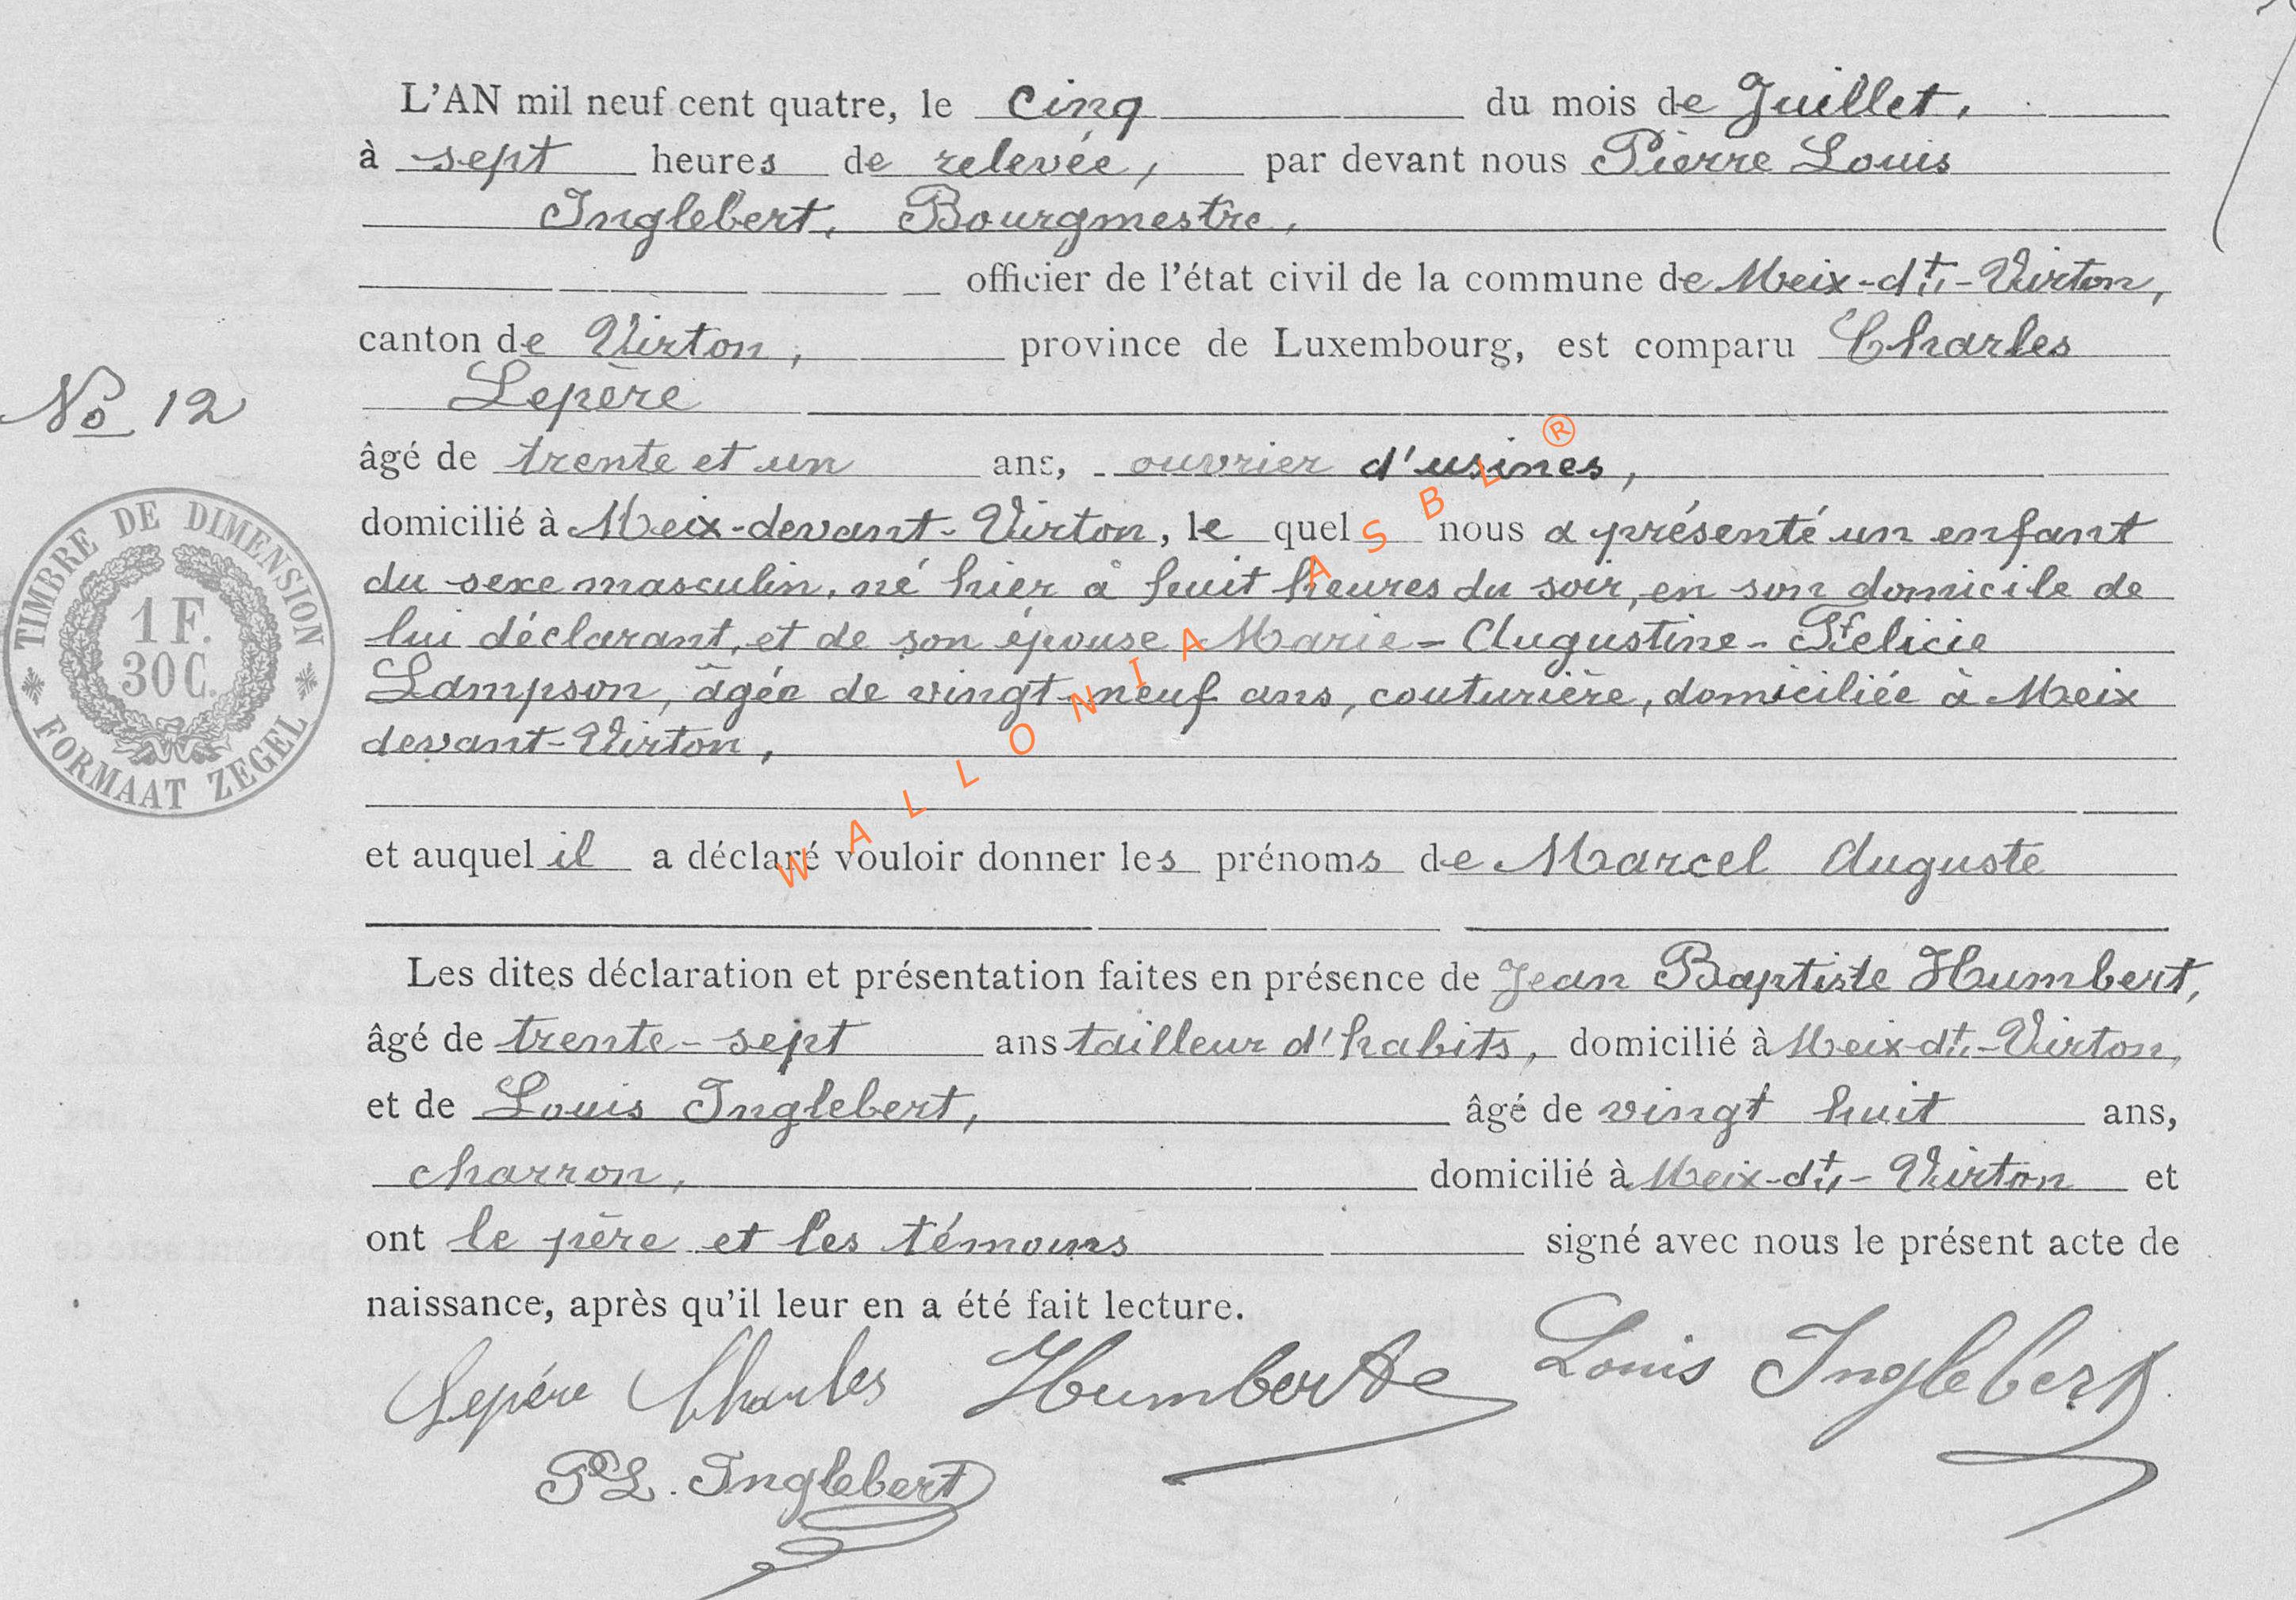 L'AN mil neuf cent quatre, le cinq du mois de Juillet,
à sept heures de relevée, par devant nous Pierre Louis
Inglebert, Bourgmestre,
officier de l'état civil de la commune de Meix-dt-Virton,
canton de Virton, province de Luxembourg, est comparu Charles
Lepère
No 12
âgé de trente et un ans, ouvrier d'usines,
domicilié à Meix-devant-Virton, le quel nous a présenté un enfant
du sexe masculin, né hier à huit heures du soir, en son domicile de
lui déclarant, et de son épouse Marie-Augustine-Félicie
Lampson, âgée de vingt-neuf ans, couturière, domiciliée à Meix
devant-Virton,
et auquel il a déclaré vouloir donner les prénoms de Marcel Auguste
Les dites déclaration et présentation faites en présence de Jean Baptiste Humbert,
âgé de trente-sept ans tailleur d'habits, domicilié à Meix-dt-Virton,
et de Louis Inglebert, âgé de vingt huit ans,
charron, domicilié à Meix-dt-Virton et
ont le père et les témoins signé avec nous le présent acte de
naissance, après qu'il leur en a été fait lecture.
Lepère Charles Humbert Louis Inglebert
PL. Inglebert
TIMBRE DE DIMENSION
1 F.
30 C.
FORMAAT ZEGEL
WALLONIA ASBL ®